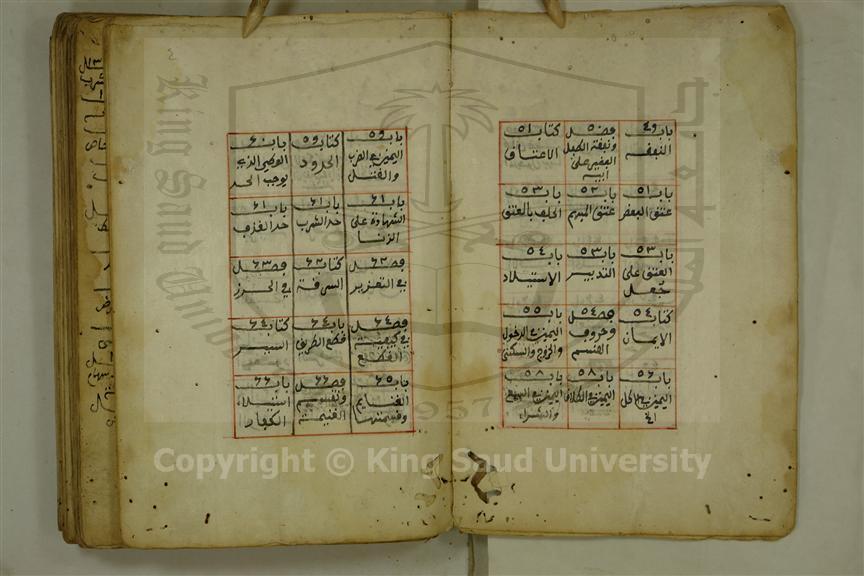 باب ٤٩ فصل ٥٠ كتاب ٥١
النفقه ونفقة الطفل الاعتاق
الفقير على
ابيه
باب ٥١ باب ٥٢ باب ٥٣
عتق البعض عتق المبهم الحلف بالعتق
باب ٥٣ باب ٥٣ باب ٥٤
العتق على التدبير الاستيلاد
جعل
كتاب ٥٤ فصل ٥٤ باب ٥٥
الايمان وحروف اليمين في الدخول
القسم والخروج والسكنى
باب ٥٦ باب ٥٨ باب ٥٨
اليمين في الاكل اليمين في الكلام اليمين في البيع
والشراء
باب ٥٩ كتاب ٥٩ باب ٦٠
اليمين في الضرب الحدود الوطئ الذي
والقتل يوجب الحد
باب ٦١ باب ٦١ باب ٦١
الشهادة على حد الشرب حد القذف
الزنا
فصل ٦٢ كتاب ٦٢ فصل ٦٣
في التعزير السرقة في الحرز
فصل ٦٤ باب ٦٤ كتاب ٦٤
في كيفية قطع الطريق السير
القطع
باب ٦٥ فصل ٦٦ باب ٦٦
الغنايم استيلاء
وقسمتها الغنيمة الكفار
King Saud University
1957
Copyright © King Saud University